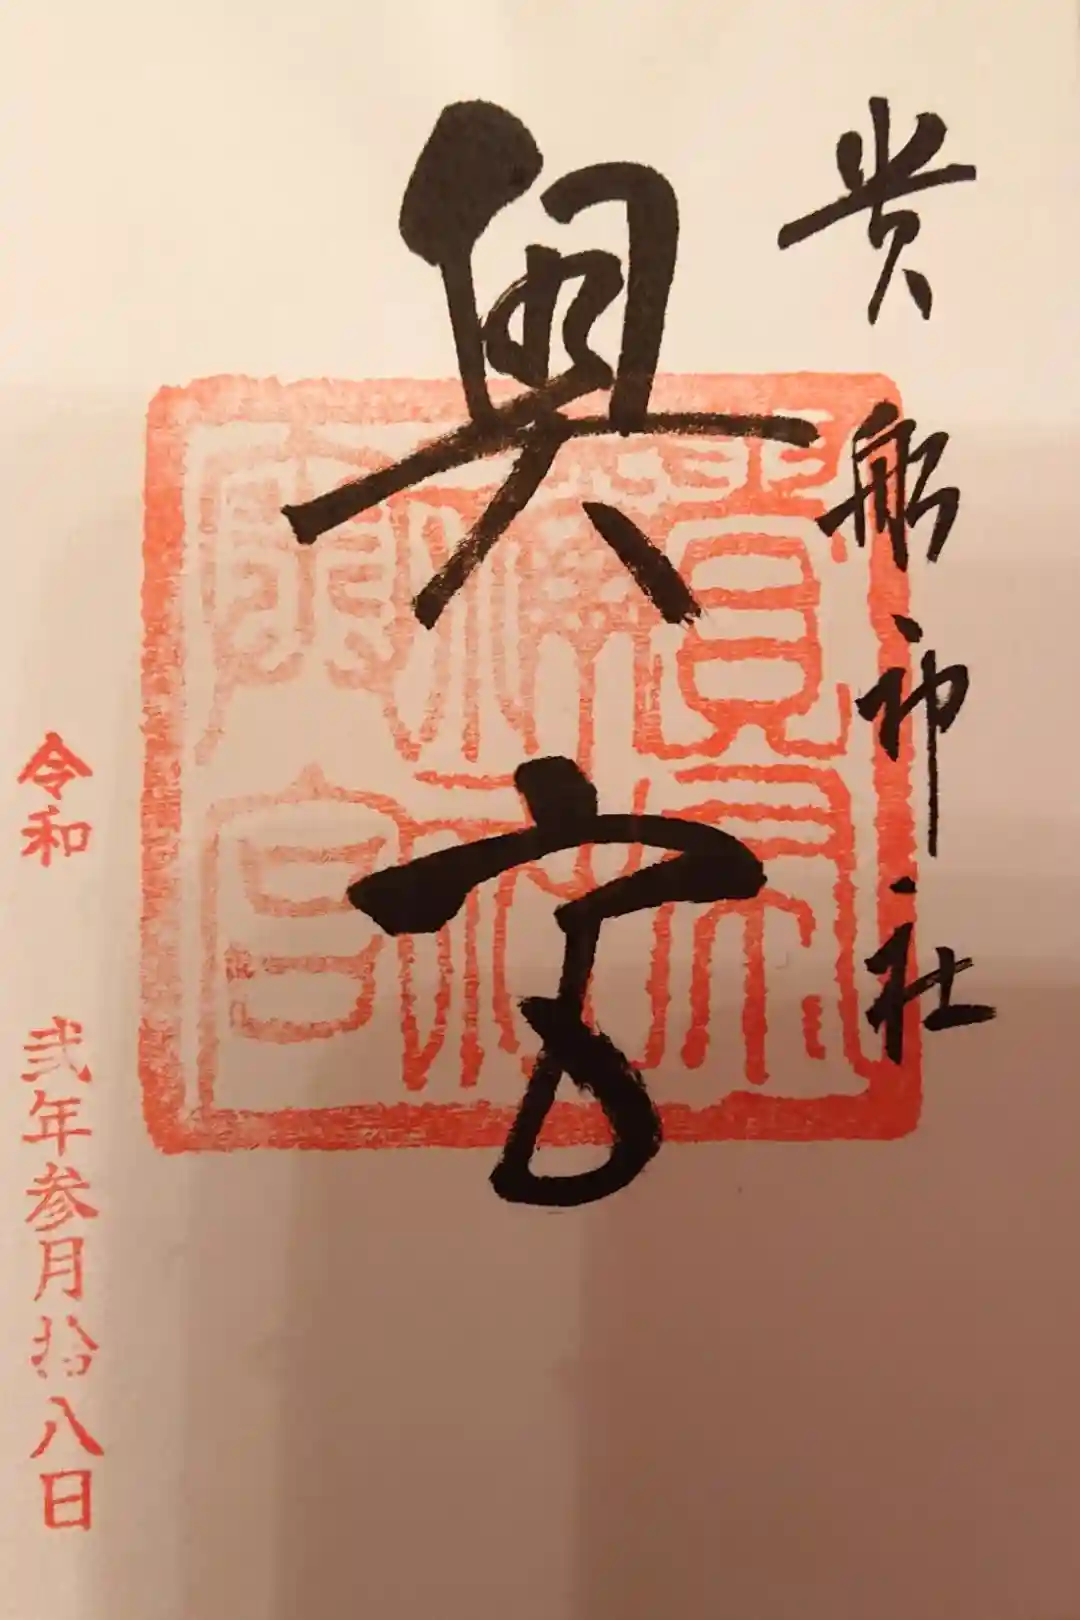 貴船神社
奥宮
令和 弐年参月拾八日